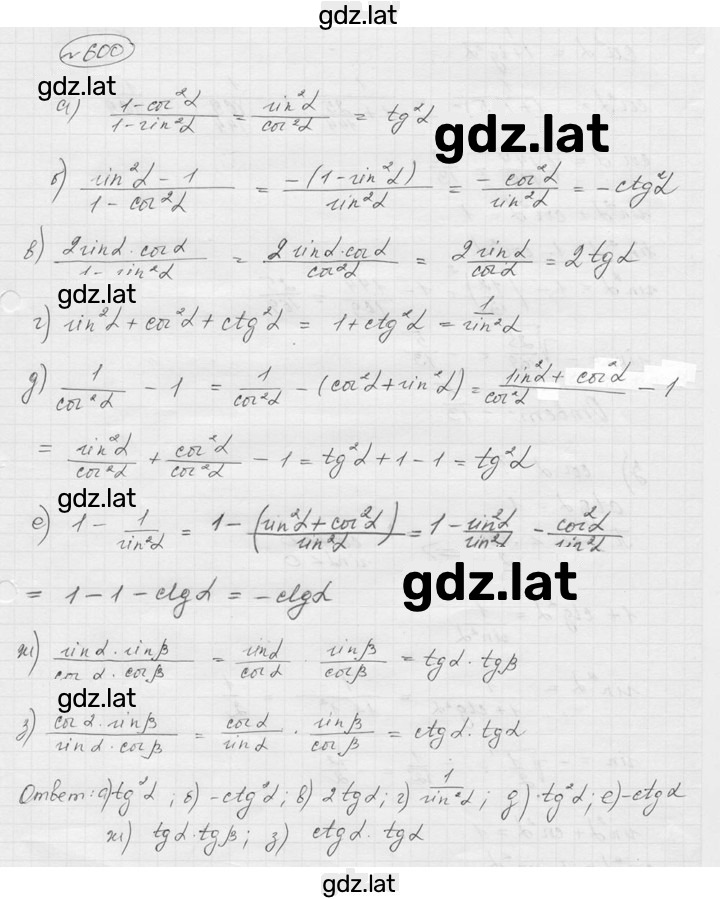 gdz.lat
№600
gdz.lat
а) (1-cos²α)/(1-sin²α) = sin²α/cos²α = tg²α
gdz.lat
б) (sin²α - 1)/(1 - cos²α) = -(1-sin²α)/sin²α = -cos²α/sin²α = -ctg²α
в) (2sinα·cosα)/(1-sin²α) = (2sinα·cosα)/cos²α = 2sinα/cosα = 2tgα
gdz.lat
г) sin²α + cos²α + ctg²α = 1 + ctg²α = 1/sin²α
д) 1/cos²α - 1 = 1/cos²α - (cos²α + sin²α) = (sin²α + cos²α)/cos²α - 1
= sin²α/cos²α + cos²α/cos²α - 1 = tg²α + 1 - 1 = tg²α
gdz.lat
е) 1 - 1/sin²α = 1 - ((sin²α + cos²α)/sin²α) = 1 - sin²α/sin²α - cos²α/sin²α
= 1 - 1 - ctgα = -ctgα
gdz.lat
ж) (sinα·sinβ)/(cosα·cosβ) = sinα/cosα · sinβ/cosβ = tgα·tgβ
gdz.lat
з) (cosα·sinβ)/(sinα·cosβ) = cosα/sinα · sinβ/cosβ = ctgα·tgα
Ответ: а) tg²α; б) -ctg²α; в) 2tgα; г) 1/sin²α; д) tg²α; е) -ctgα
ж) tgα·tgβ; з) ctgα·tgα
gdz.lat